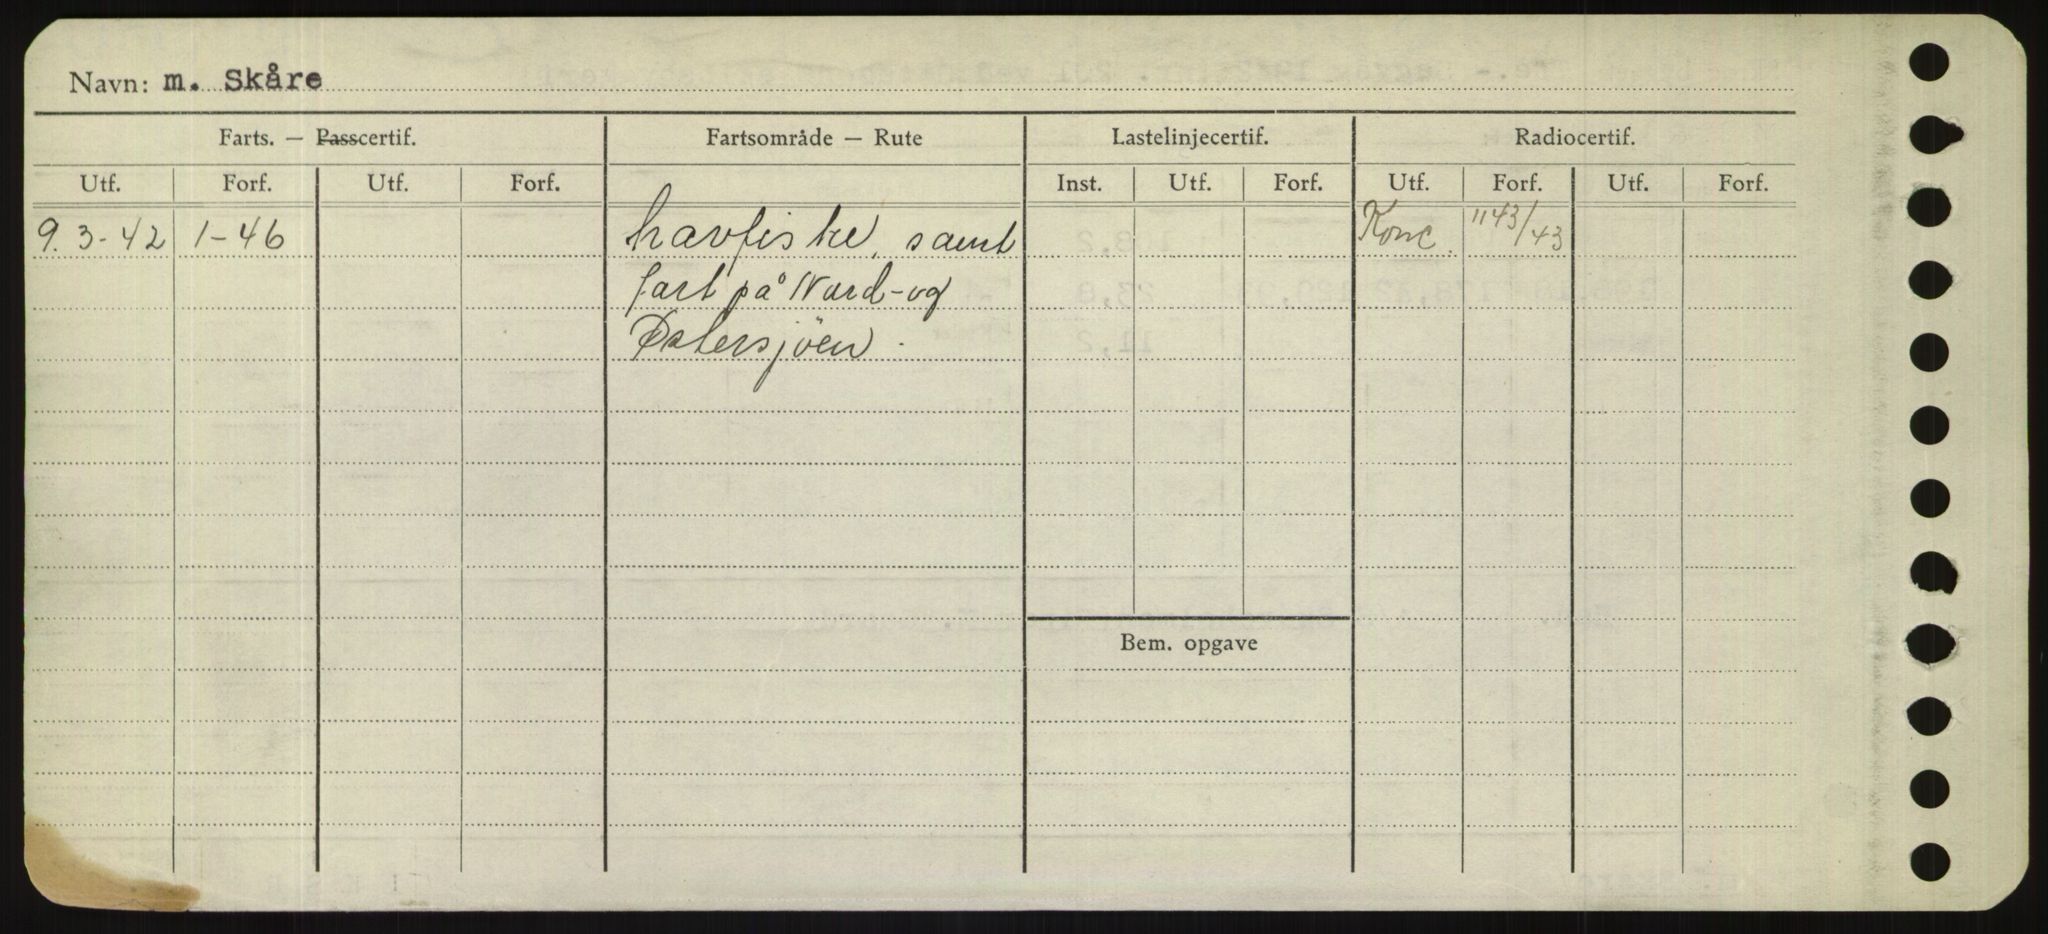 Navn: m. Skåre
Farts. — Passcertif. Fartsområde — Rute Lastelinjecertif. Radiocertif.
Utf. Forf. Utf. Forf. Inst. Utf. Forf. Utf. Forf. Utf. Forf.
9.3-42 1-46 havfiske, samt Konc. 1143/43
fart på Nord-og
Østersjöen.
Bem. opgave